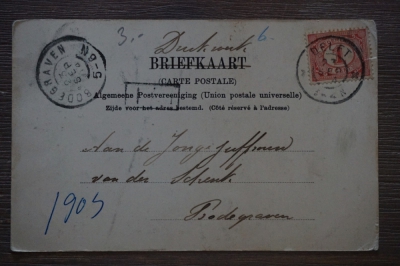 3.- Drukwerk 6.
BRIEFKAART
(CARTE POSTALE)
Algemeene Postvereeniging (Union postale universelle)
Zijde voor het adres bestemd. (Côté réservé à l'adresse)
BODEGRAVEN
Aan de Jonge Juffrouw
van der
Bodegraven
1905